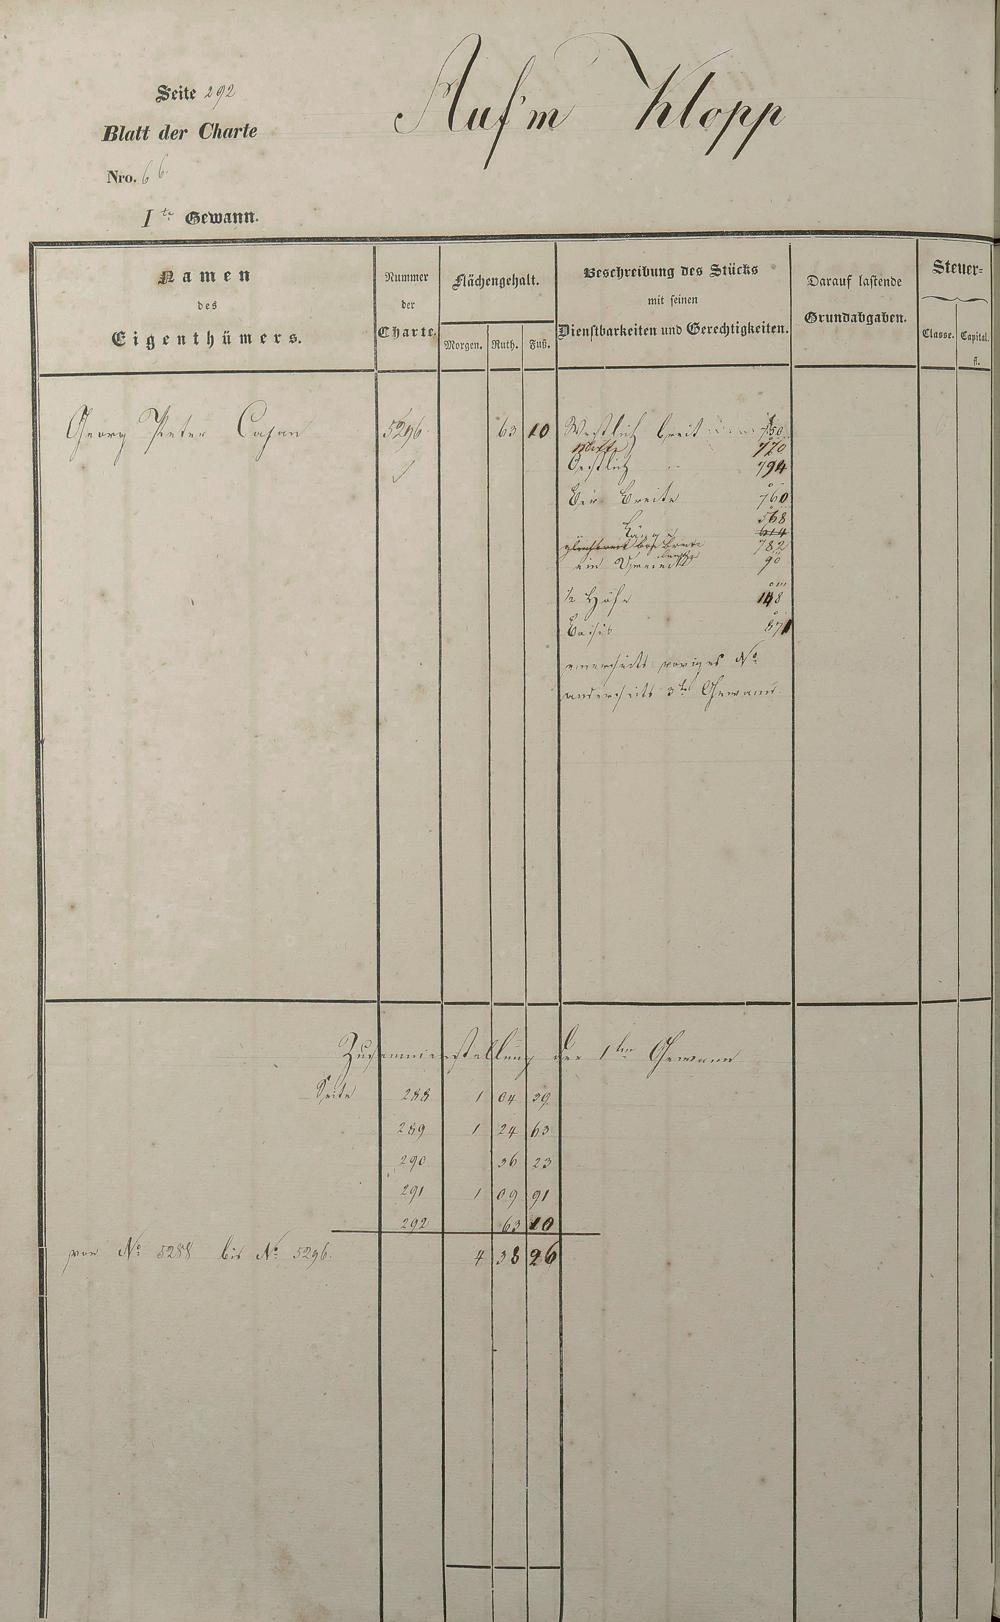 Seite 292
Auf'm Klopp
Blatt der Charte
Nro. 66
I te Gewann.
Namen
des
Eigenthümers.
Nummer
der
Charte.
Flächengehalt.
Morgen. Ruth. Fuß.
Beschreibung des Stücks
mit seinen
Dienstbarkeiten und Gerechtigkeiten.
Darauf lastende
Grundabgaben.
Steuer-
Classe. Capital.
fl.
Georg Peter Cajan 5296 63 10 Westlich breit 750
Mitte 770
Oestlich 794
Die Breite 760
568
614
782
ein 90
½ Höhe 148
Basis 871
einerseits voriges No.
anderseits 3te Gewann
Zusammenstellung der 1ten Gewann
Seite 288 1 04 39
289 1 24 63
290 36 23
291 1 09 91
292 63 10
von No. 5288 bis No. 5296. 4 38 26